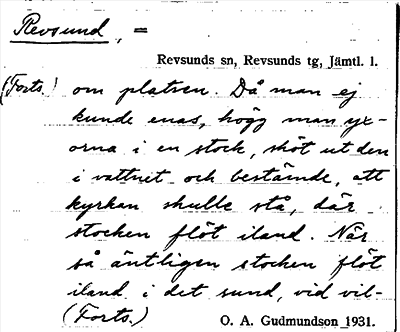 Revsund, =
Revsunds sn, Revsunds tg, Jämtl. l.
(Forts.) om platsen. Då man ej
kunde enas, högg man yx-
orna i en stock, sköt ut den
i vattnet och bestämde, att
kyrkan skulle stå, där
stocken flöt iland. När
så äntligen stocken flöt
iland i det sund, vid vil-
(Forts.) O. A. Gudmundson 1931.